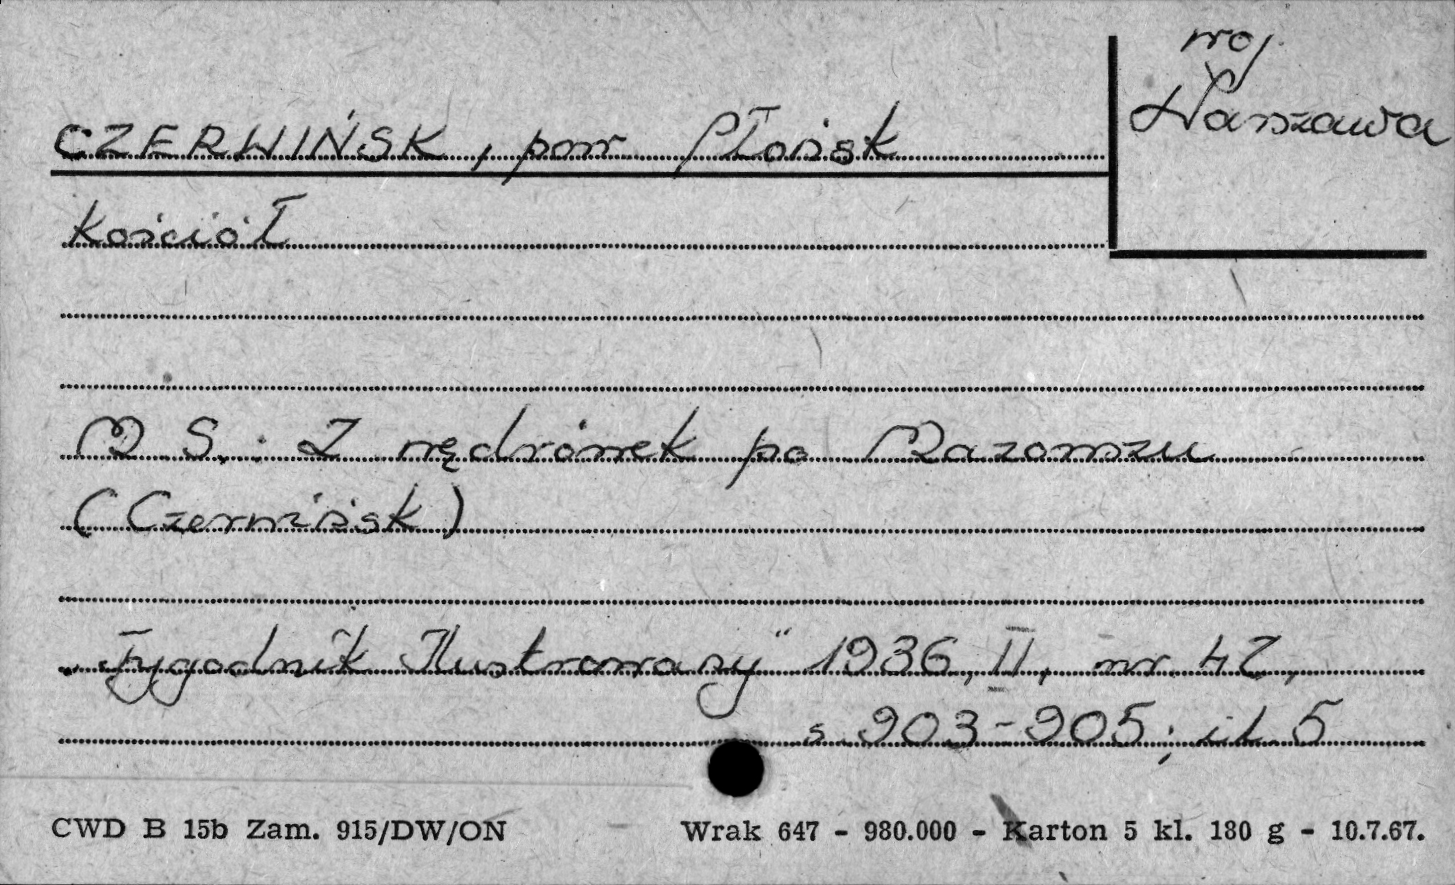 woj.
Warszawa
CZERWIŃSK, pow Płońsk
Kościół
M. S.: Z wędrówek po Mazowszu
(Czerwińsk)
"Tygodnik Ilustrowany" 1936, II, nr 47,
s. 903-905; il. 5
CWD B 15b Zam. 915/DW/ON Wrak 647 - 980.000 - Karton 5 kl. 180 g - 10.7.67.